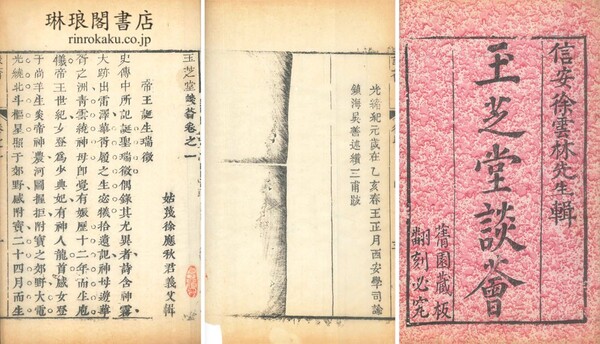 琳琅閣書店
rinrokaku.co.jp
信安徐雲林先生輯
玉芝堂談薈
蒨園藏板
翻刻必究
光緒紀元歲在乙亥春王正月西安學司諭
鎮海吳善述續三甫跋
玉芝堂談薈卷之一
姑蔑徐應秋君義父輯
帝王誕生瑞徵
史傳中所記誕聖瑞徵偶錄其尤異者詩含神霧
大跡出雷澤華胥履之生宓犧拾遺記神母遊華
胥之洲青雲繞神母卽覺有娠歷十二年而生庖
犧帝王世紀女登爲少典妃有神人龍首感女登
于尚羊生炎帝神農河圖握拒附寶之郊野大電
光繞北斗樞星照于郊野感附寶二十四月而生